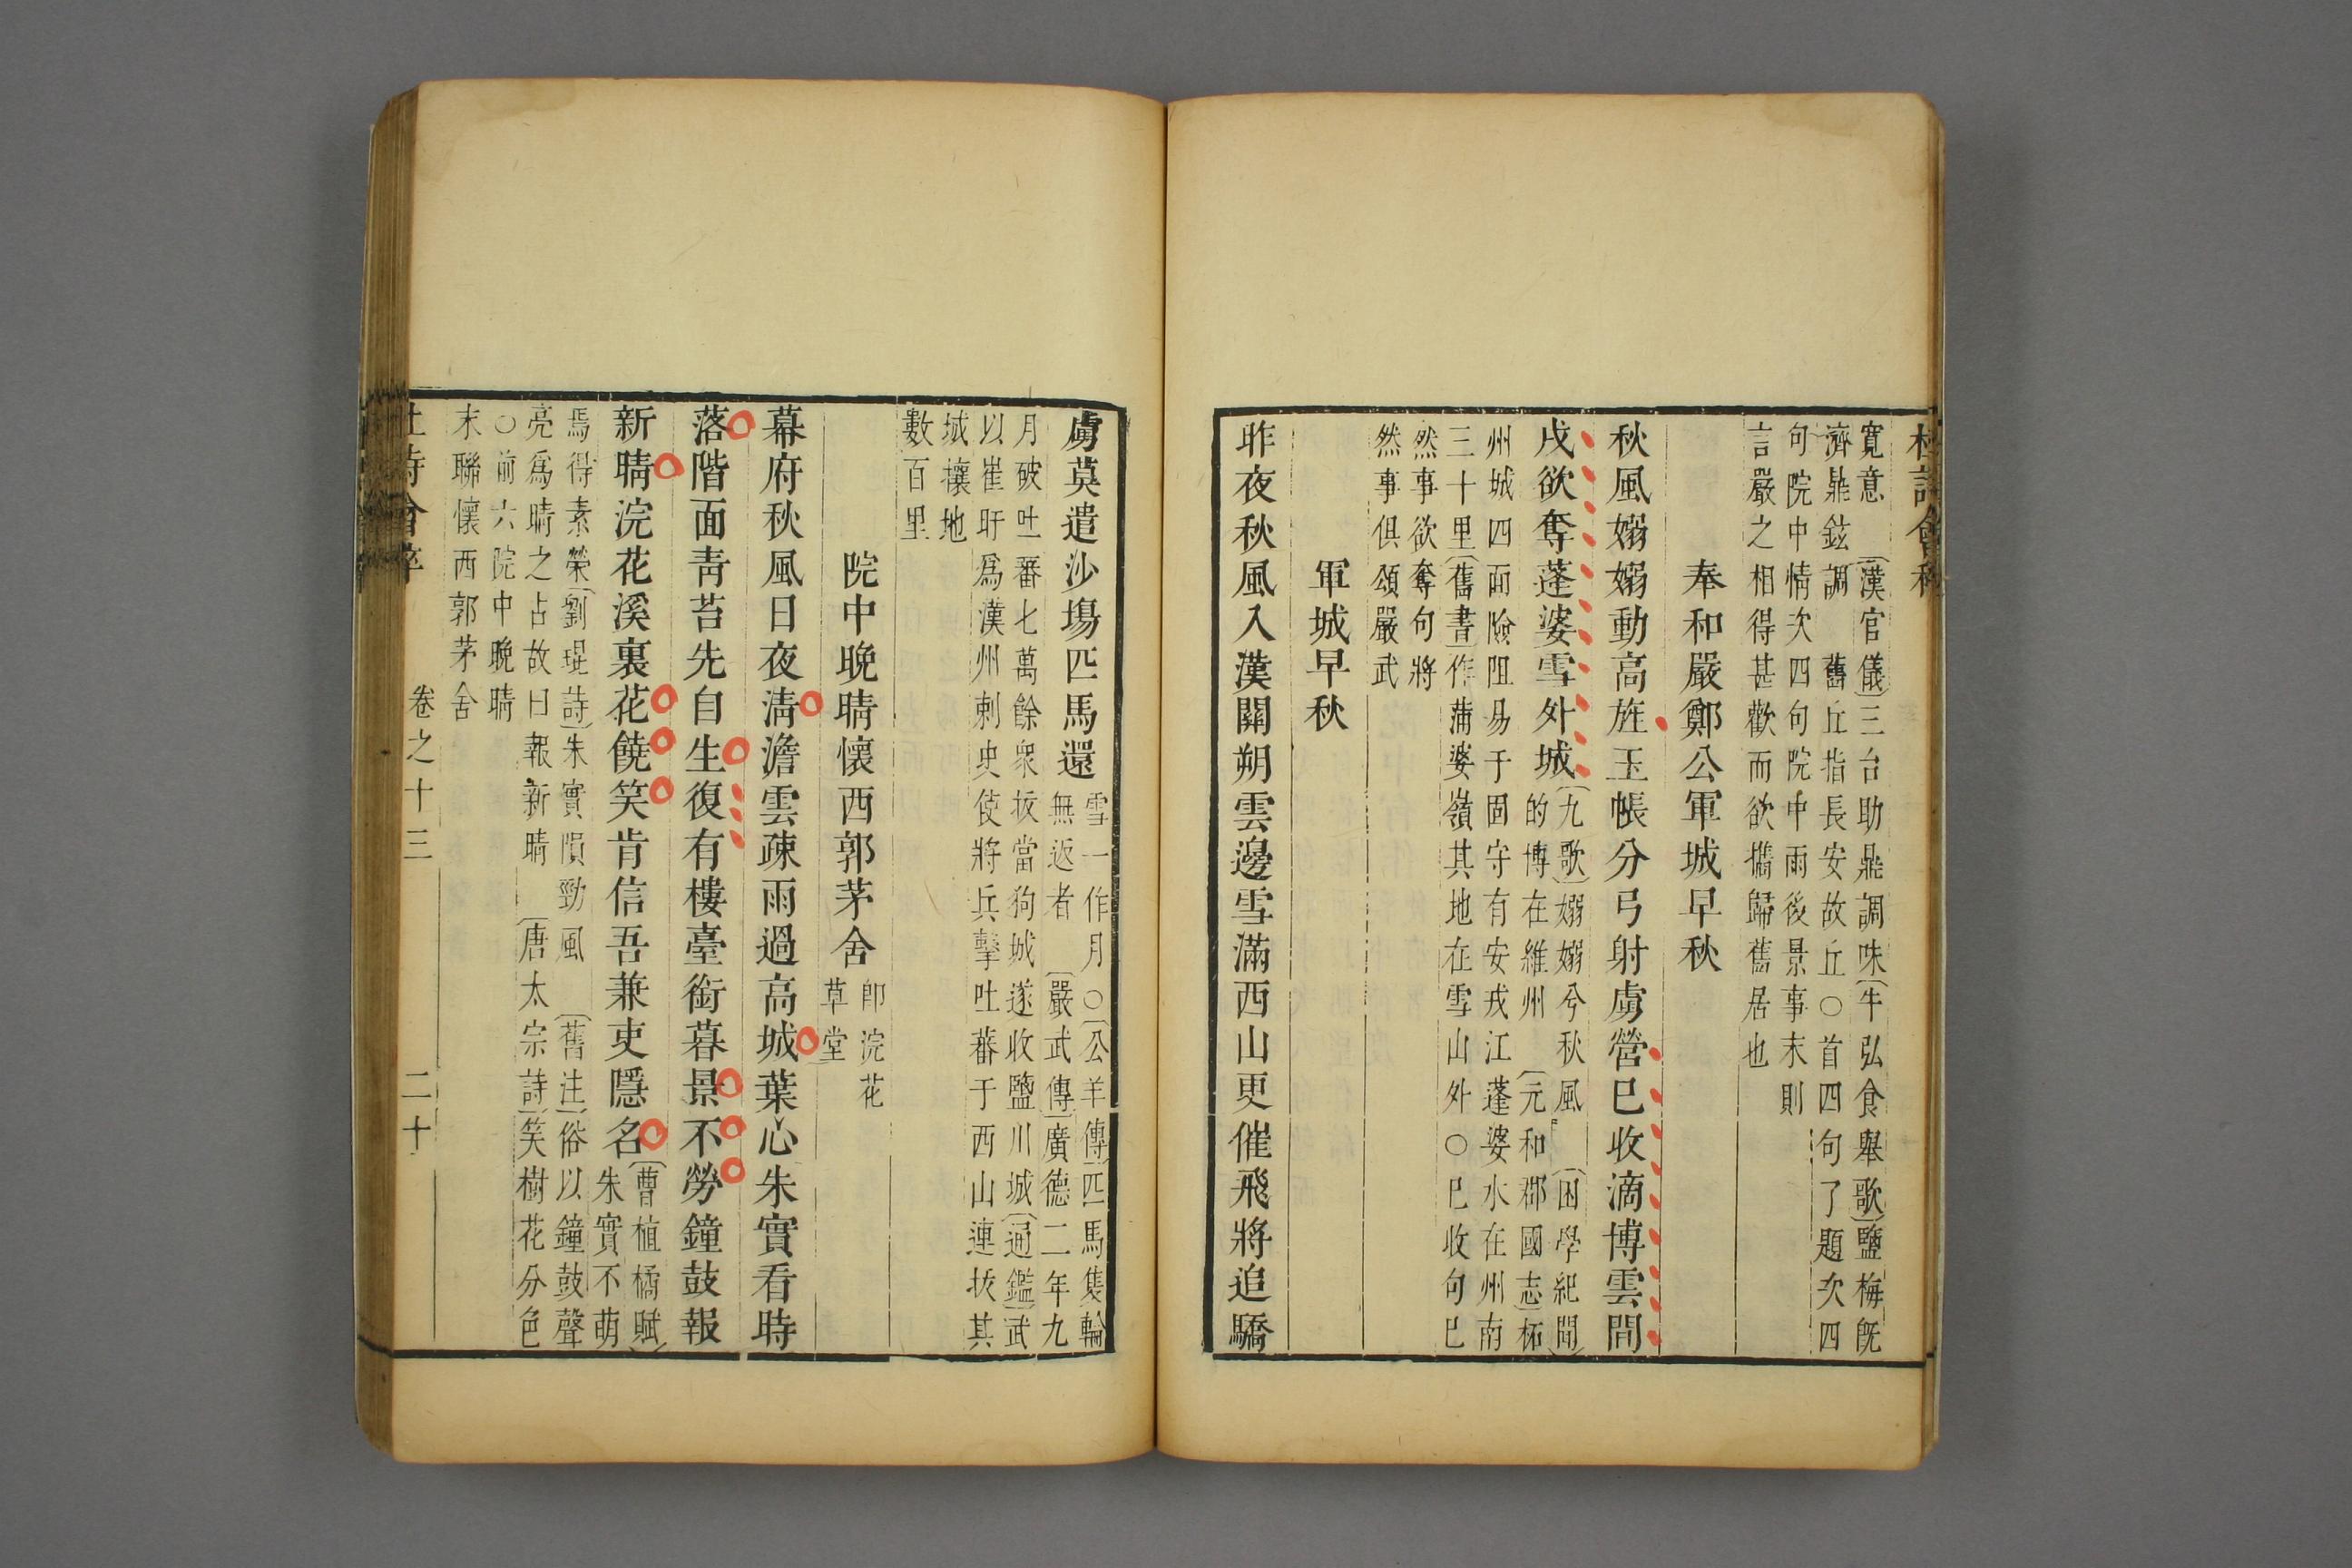 寬意　〔漢官儀〕三台助鼎調味〔牛弘食舉歌〕鹽梅既
濟鼎鉉調　舊丘指長安故丘○首四句了題次四
句院中情次四句院中雨後景事末則
言嚴之相得甚歡而欲攜歸舊居也
奉和嚴鄭公軍城早秋
秋風嫋嫋動高旌玉帳分弓射虜營已收滴博雲間
戍欲奪蓬婆雪外城〔九歌〕嫋嫋兮秋風　〔困學紀聞〕
的博在維州　〔元和郡國志〕柘
州城四面險阻易于固守有安戎江蓬婆水在州南
三十里〔舊書〕作蒲婆嶺其地在雪山外○已收句已
然事欲奪句將
然事俱頌嚴武
軍城早秋
昨夜秋風入漢關朔雲邊雪滿西山更催飛將追驕
虜莫遣沙塲匹馬還　雪一作月○〔公羊傳〕匹馬隻輪
無返者　〔嚴武傳〕廣德二年九
月破吐蕃七萬餘衆㧞當狗城遂收鹽川城〔通鑑〕武
以崔旰爲漢州刺史使將兵擊吐蕃于西山連㧞其
城攘地
數百里
院中晚晴懷西郭茅舍　卽浣花
草堂
幕府秋風日夜淸澹雲疎雨過高城葉心朱實看時
落階面靑苔先自生復有樓臺銜暮景不勞鐘鼓報
新晴浣花溪裏花饒笑肯信吾兼吏隱名〔曹植橘賦〕
朱實不萌
焉得素榮〔劉琨詩〕朱實隕勁風　〔舊注〕俗以鐘鼓聲
亮爲晴之占故曰報新晴　〔唐太宗詩〕笑樹花分色
○前六院中晚晴
末聯懷西郭茅舍
卷之十三　二十